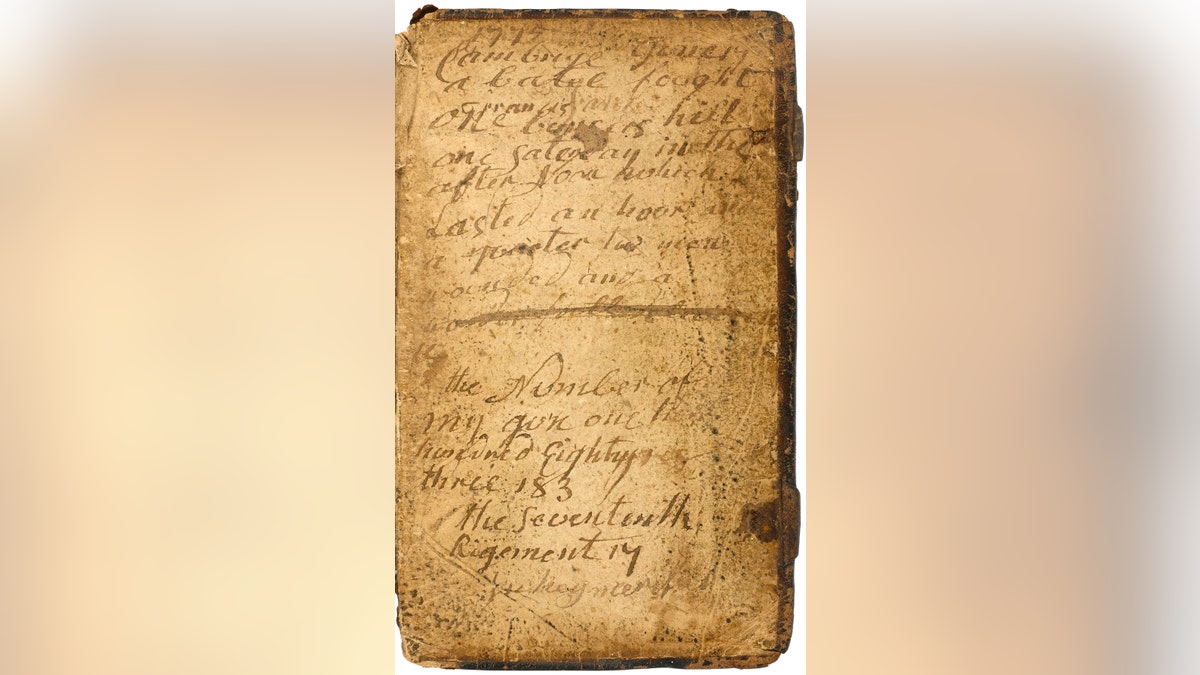 1775
Cambrige
a batel fought
one bunkers hill
one Saterday in the
after Noon which
Lasted an hoor and
a quarter two men
wounded and a
the Number of
my gon one
hundred Eighty
three 183
the sevententh
Rigement 17